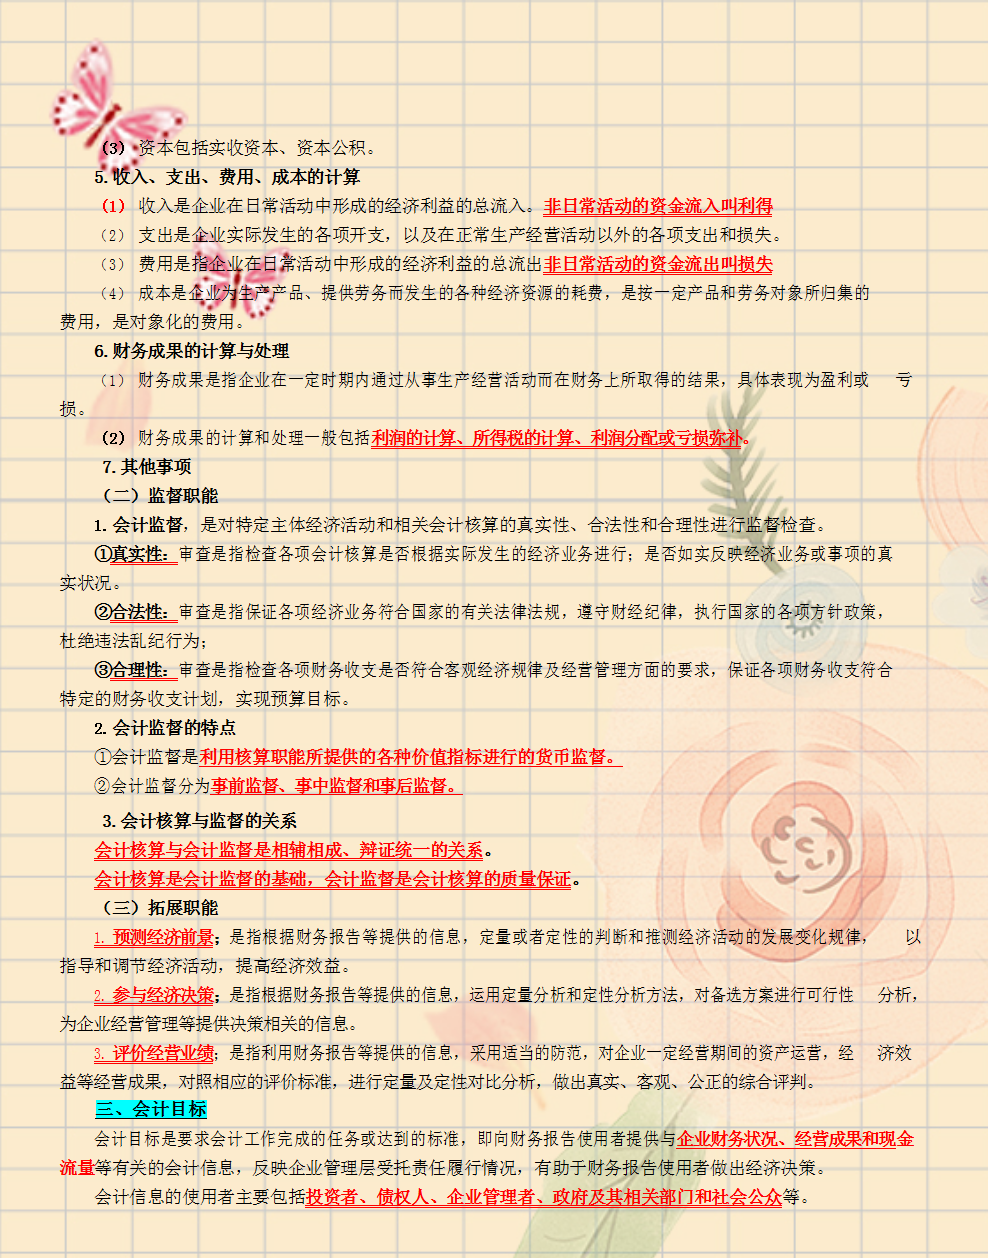 （3） 资本包括实收资本、资本公积。
5.收入、支出、费用、成本的计算
（1） 收入是企业在日常活动中形成的经济利益的总流入。非日常活动的资金流入叫利得
（2） 支出是企业实际发生的各项开支，以及在正常生产经营活动以外的各项支出和损失。
（3） 费用是指企业在日常活动中形成的经济利益的总流出非日常活动的资金流出叫损失
（4） 成本是企业为生产产品、提供劳务而发生的各种经济资源的耗费，是按一定产品和劳务对象所归集的
费用，是对象化的费用。
6.财务成果的计算与处理
（1） 财务成果是指企业在一定时期内通过从事生产经营活动而在财务上所取得的结果，具体表现为盈利或 亏
损。
（2） 财务成果的计算和处理一般包括利润的计算、所得税的计算、利润分配或亏损弥补。
7.其他事项
（二）监督职能
1.会计监督，是对特定主体经济活动和相关会计核算的真实性、合法性和合理性进行监督检查。
①真实性：审查是指检查各项会计核算是否根据实际发生的经济业务进行；是否如实反映经济业务或事项的真
实状况。
②合法性：审查是指保证各项经济业务符合国家的有关法律法规，遵守财经纪律，执行国家的各项方针政策，
杜绝违法乱纪行为；
③合理性：审查是指检查各项财务收支是否符合客观经济规律及经营管理方面的要求，保证各项财务收支符合
特定的财务收支计划，实现预算目标。
2.会计监督的特点
①会计监督是利用核算职能所提供的各种价值指标进行的货币监督。
②会计监督分为事前监督、事中监督和事后监督。
3.会计核算与监督的关系
会计核算与会计监督是相辅相成、辩证统一的关系。
会计核算是会计监督的基础，会计监督是会计核算的质量保证。
（三）拓展职能
1.预测经济前景；是指根据财务报告等提供的信息，定量或者定性的判断和推测经济活动的发展变化规律， 以
指导和调节经济活动，提高经济效益。
2.参与经济决策；是指根据财务报告等提供的信息，运用定量分析和定性分析方法，对备选方案进行可行性 分析，
为企业经营管理等提供决策相关的信息。
3.评价经营业绩；是指利用财务报告等提供的信息，采用适当的防范，对企业一定经营期间的资产运营，经 济效
益等经营成果，对照相应的评价标准，进行定量及定性对比分析，做出真实、客观、公正的综合评判。
三、会计目标
会计目标是要求会计工作完成的任务或达到的标准，即向财务报告使用者提供与企业财务状况、经营成果和现金
流量等有关的会计信息，反映企业管理层受托责任履行情况，有助于财务报告使用者做出经济决策。
会计信息的使用者主要包括投资者、债权人、企业管理者、政府及其相关部门和社会公众等。